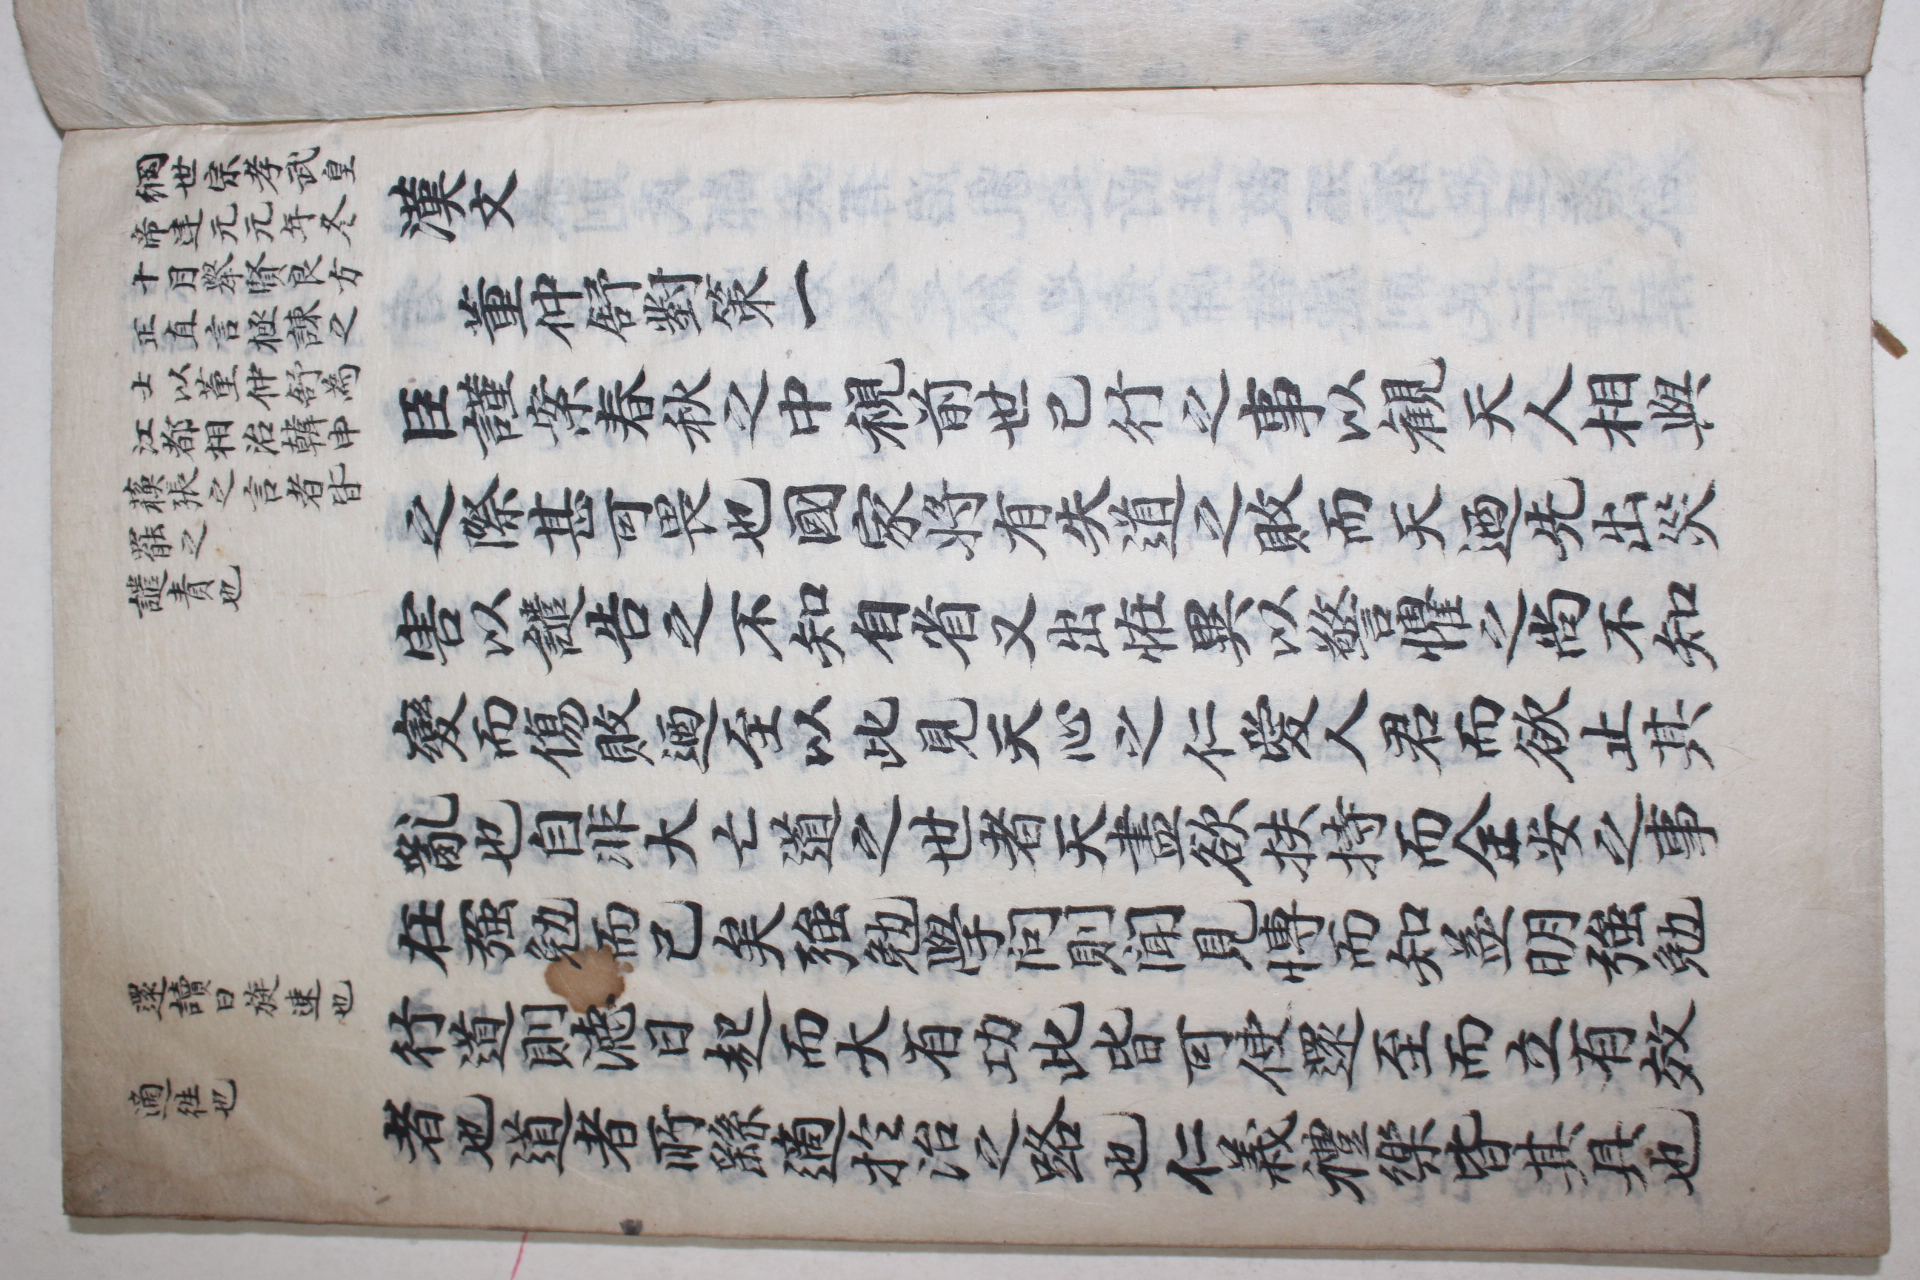 綱世宗孝武皇
帝建元元年冬
十月擧賢良方
正直言極諫之
士以董仲舒為
江都相治韓申
蘓張之言者皆
罷之
譴責也
還讀曰旋速也
適往也
漢文
董仲舒對策一
臣謹案春秋之中視前世已行之事以觀天人相與
之際甚可畏也國家將有失道之敗而天迺先出災
害以譴告之不知自省又出恠異以警懼之尚不知
變而傷敗迺至以此見天心之仁愛人君而欲止其
亂也自非大亡道之世者天盡欲扶持而全安之事
在强勉而已矣强勉學问則闻見博而知益明强勉
行道則德日起而大有功此皆可使還至而立有效
者也道者所繇適於治之路也仁義禮樂皆其具也